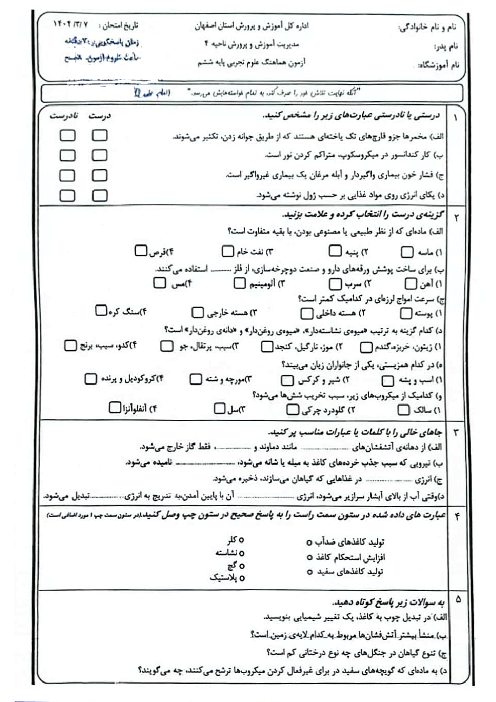 نام و نام خانوادگی:
نام پدر:
نام آموزشگاه:
اداره کل آموزش و پرورش استان اصفهان
مدیریت آموزش و پرورش ناحیه ۴
آزمون هماهنگ علوم تجربی پایه ششم
تاریخ امتحان: ۱۴۰۴/۳/۷
زمان پاسخگویی:
"آنگه نهایت تلاش خود را صرف کند، به تمام خواسته‌هایش می‌رسد." (امام علی)
۱ درستی یا نادرستی عبارت‌های زیر را مشخص کنید. درست نادرست
الف) مخمرها جزو قارچ‌های تک یاخته‌ای هستند که از طریق جوانه زدن، تکثیر می‌شوند.
ب) کار کندانسور در میکروسکوپ، متراکم کردن نور است.
ج) فشار خون بیماری واگیردار و آبله مرغان یک بیماری غیرواگیر است.
د) یکای انرژی روی مواد غذایی بر حسب ژول نوشته می‌شود.
۲ گزینه‌ی درست را انتخاب کرده و علامت بزنید.
الف) ماده‌ای که از نظر طبیعی یا مصنوعی بودن، با بقیه متفاوت است؟
۱) ماسه ۲) پنبه ۳) نفت خام ۴) قرص
ب) برای ساخت پوشش ورقه‌های دارو و صنعت دوچرخه‌سازی، از فلز .......... استفاده می‌کنند.
۱) آهن ۲) سرب ۳) آلومینیم ۴) مس
ج) سرعت امواج لرزه‌ای در کدامیک کمتر است؟
۱) پوسته ۲) هسته داخلی ۳) هسته خارجی ۴) سنگ کره
د) کدام گزینه به ترتیب «میوه‌ی نشاسته‌دار»، «میوه‌ی روغن‌دار» و «دانه‌ی روغن‌دار» است؟
۱) زیتون، خربزه، گندم ۲) موز، نارگیل، کنجد ۳) سیب، پرتقال، جو ۴) کدو، سیب، برنج
ه) در کدام همزیستی، یکی از جانواران زیان می‌بیند؟
۱) اسب و پشه ۲) شیر و کرکس ۳) مورچه و شته ۴) کروکودیل و پرنده
و) کدامیک از میکروب‌های زیر، سبب تخریب شش‌ها می‌شود؟
۱) سالک ۲) گلودرد چرکی ۳) سل ۴) آنفلوآنزا
۳ جاهای خالی را با کلمات یا عبارات مناسب پر کنید.
الف) از دهانه‌ی آتشفشان‌های .............. مانند دماوند و .............. فقط گاز خارج می‌شود.
ب) نیرویی که سبب جذب خرده‌های کاغذ به میله یا شانه می‌شود، .............. نامیده می‌شود.
ج) انرژی .............. در غذاهایی که گیاهان می‌سازند، ذخیره می‌شود.
د) وقتی آب از بالای آبشار سرازیر می‌شود، انرژی .............. آن با پایین آمدن به تدریج به انرژی .............. تبدیل می‌شود.
۴ عبارت های داده شده در ستون سمت راست را به پاسخ صحیح در ستون چپ وصل کنید. (در ستون سمت چپ ۱ مورد اضافی است)
تولید کاغذهای ضدآب
افزایش استحکام کاغذ
تولید کاغذهای سفید
کلر
نشاسته
گچ
پلاستیک
۵ به سوالات زیر پاسخ کوتاه دهید.
الف) در تبدیل چوب به کاغذ، یک تغییر شیمیایی بنویسید.
ب) منشأ بیشتر آتش‌فشان‌ها مربوط به کدام لایه‌ی زمین است؟
ج) تنوع گیاهان در جنگل‌های چه نوع درختانی کم است؟
د) به ماده‌ای که گویچه‌های سفید در برای غیرفعال کردن میکروب‌ها ترشح می‌کنند، چه می‌گویند؟